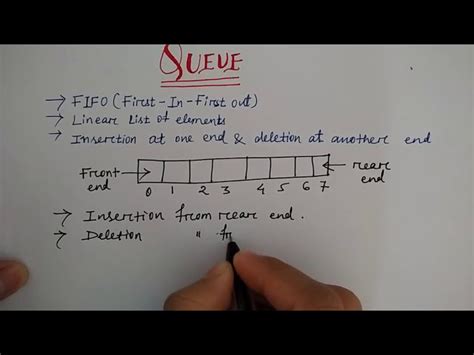 QUEUE
→ FIFO (First-In-First out)
→ Linear list of elements
→ Insertion at one end & deletion at another end
Front end
rear end
0 1 2 3 4 5 6 7
→ Insertion from rear end.
→ Deletion " fr